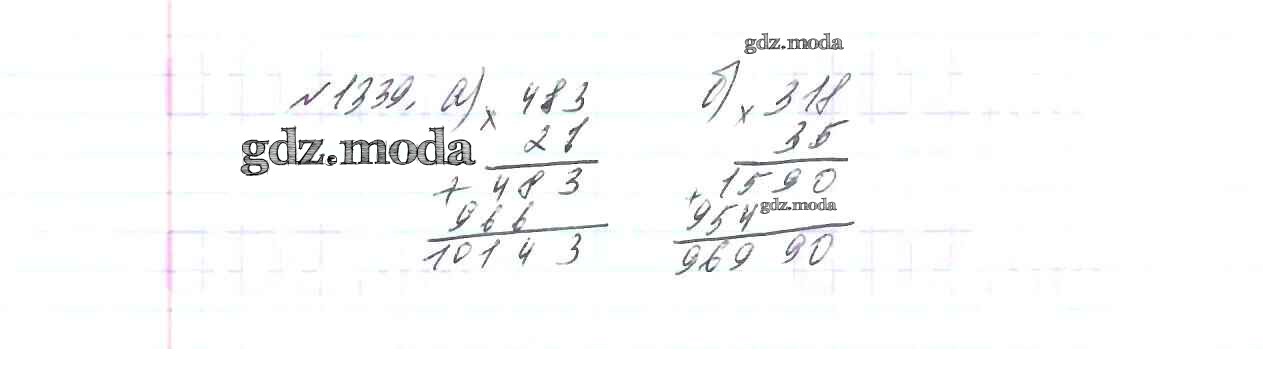 gdz.moda
№1339. а) × 483 б) × 318
21 35
gdz.moda
+ 483 + 1590
966 954 gdz.moda
10143 96990